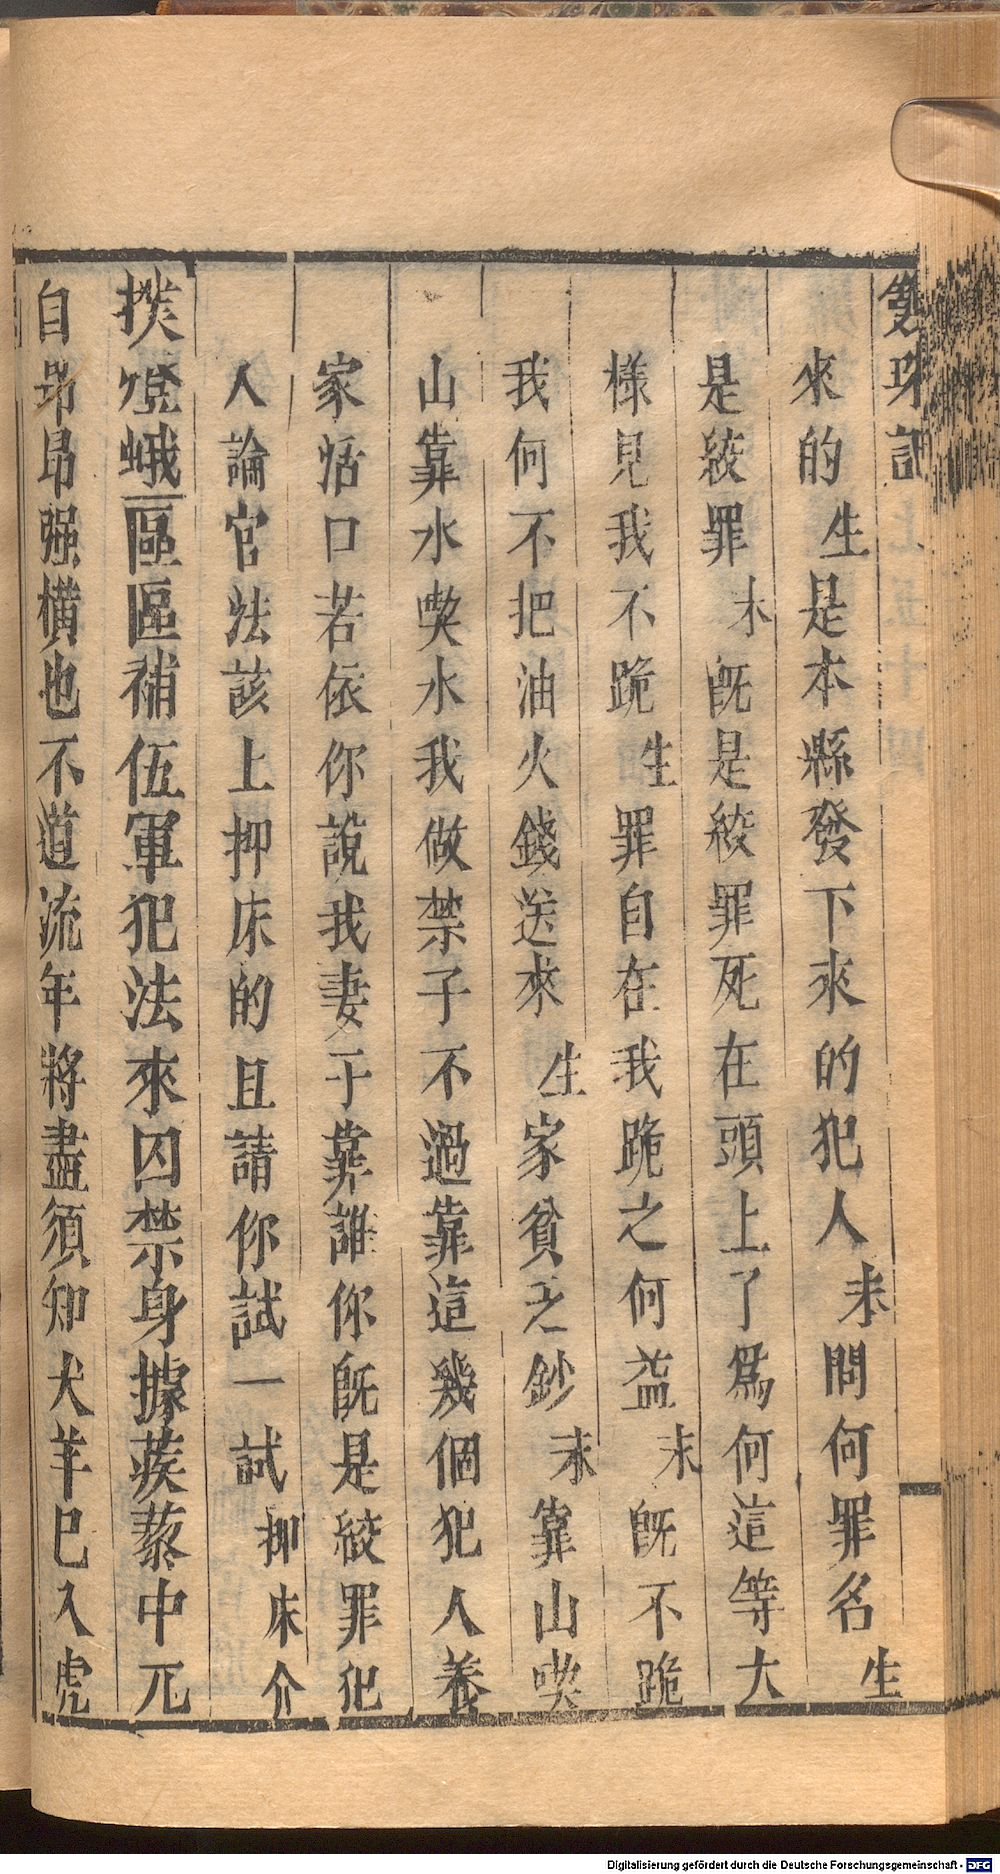 雙珠記
來的生是本縣發下來的犯人末問何罪名生
是絞罪末旣是絞罪死在頭上了爲何這等大
樣見我不跪生罪自在我跪之何益末旣不跪
我何不把油火錢送來生家貧乏鈔末靠山喫
山靠水喫水我做禁子不過靠這幾個犯人養
家活口若依你說我妻子靠誰你旣是絞罪犯
人論官法該上抑床的且請你試一試抑床介
撲燈蛾區區補伍軍犯法來囚禁身據蒺藜中兀
自昂昂强橫也不道流年將盡須知犬羊已入虎
Digitalisierung gefördert durch die Deutsche Forschungsgemeinschaft - DFG